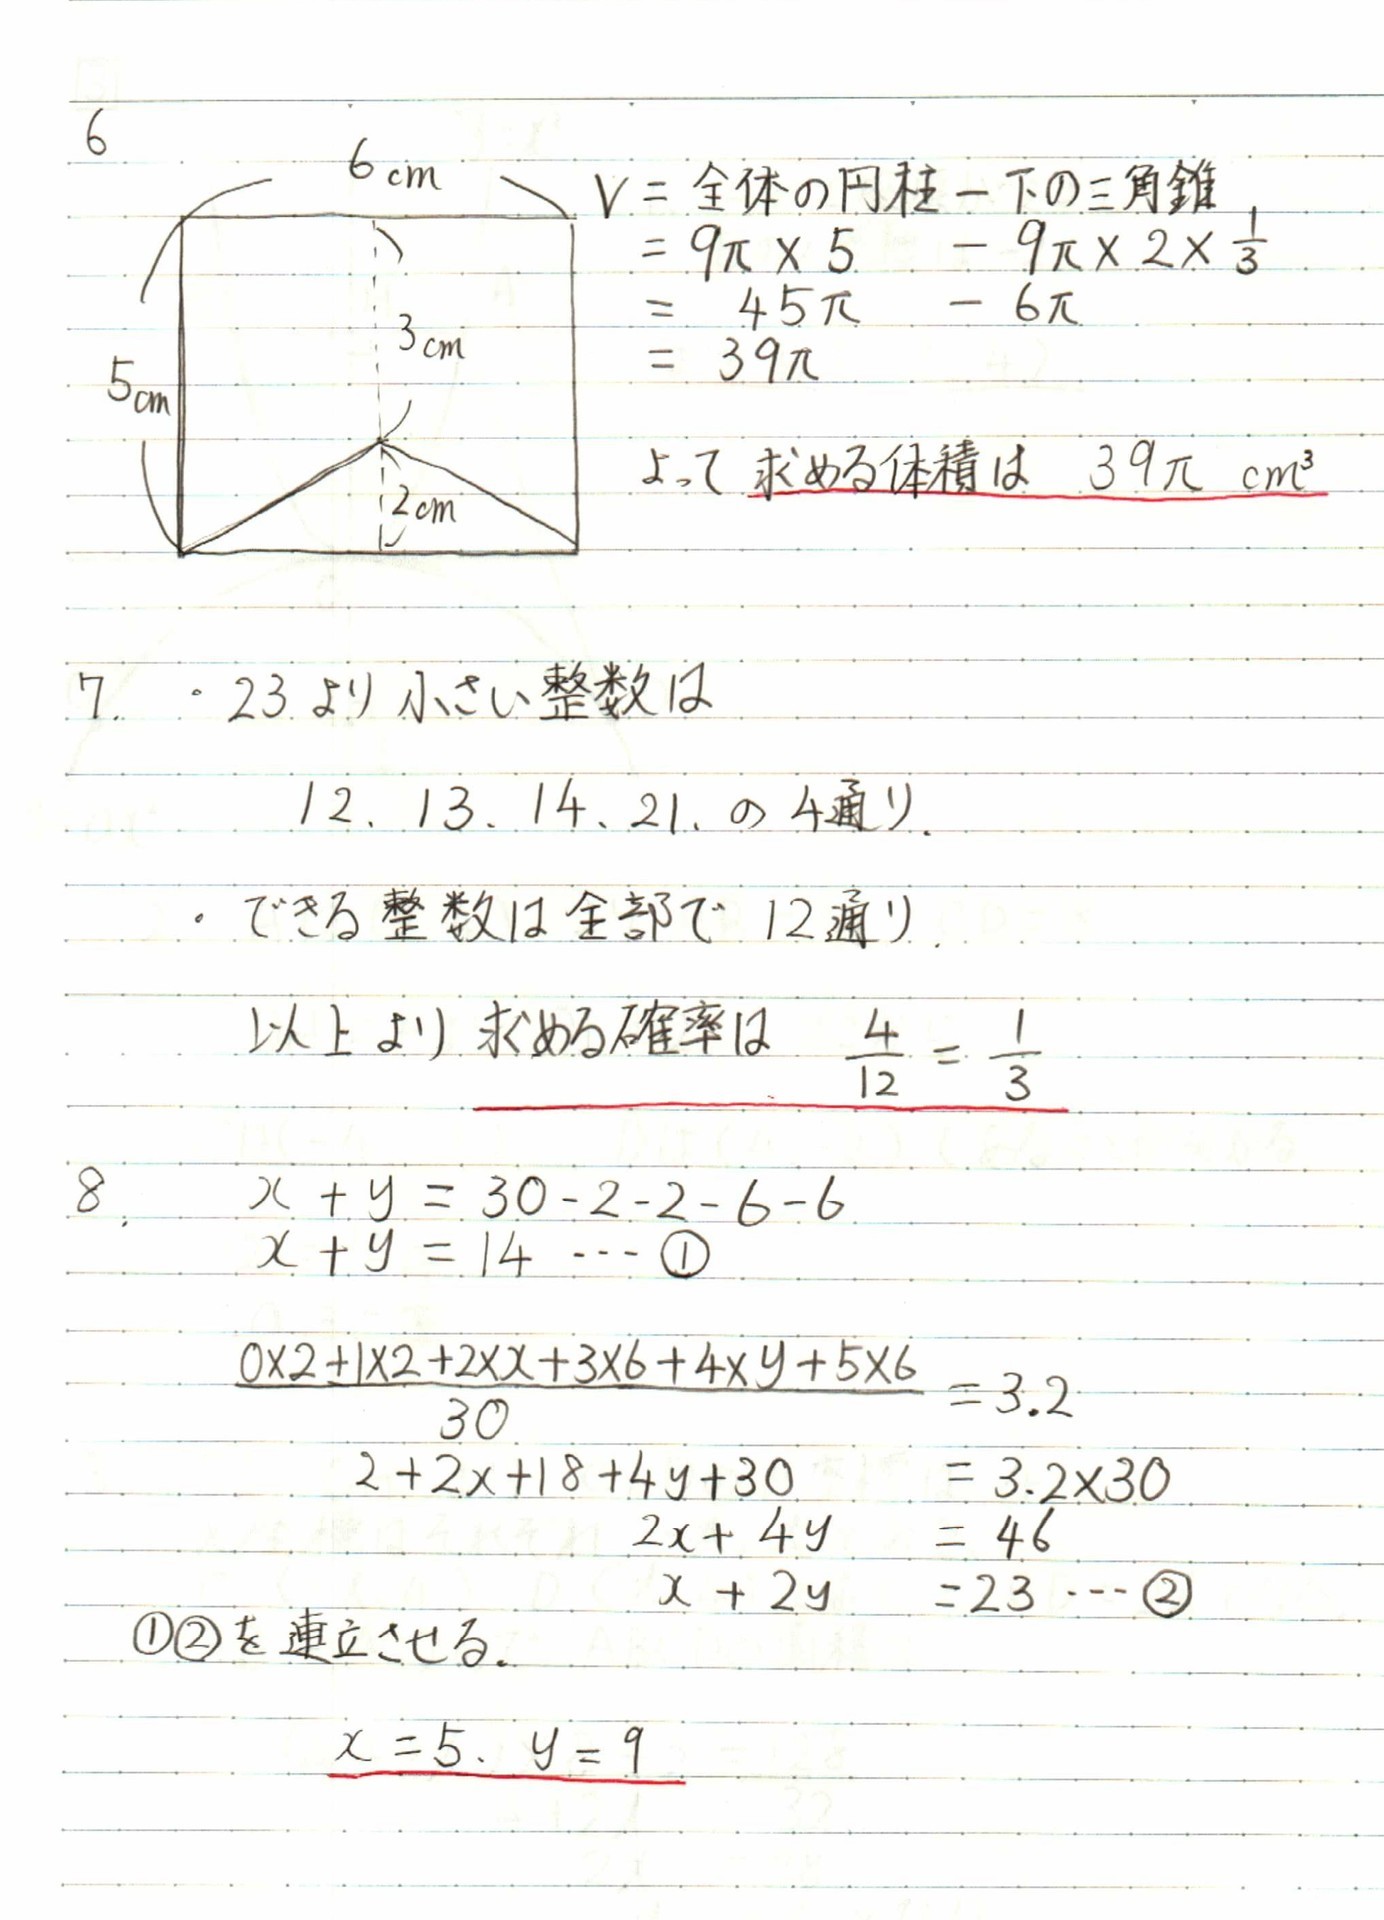 6
6cm
5cm
3cm
2cm
V = 全体の円柱 - 下の三角錐
= 9π × 5 - 9π × 2 × 1/3
= 45π - 6π
= 39π
よって 求める体積は 39π cm³
7. ・23より小さい整数は
12、13、14、21、の4通り.
・できる整数は全部で12通り.
以上より 求める確率は 4/12 = 1/3
8. x + y = 30-2-2-6-6
x + y = 14 … ①
(0×2+1×2+2×x+3×6+4×y+5×6)/30 = 3.2
2+2x+18+4y+30 = 3.2×30
2x+4y = 46
x + 2y = 23 … ②
①②を連立させる.
x = 5. y = 9